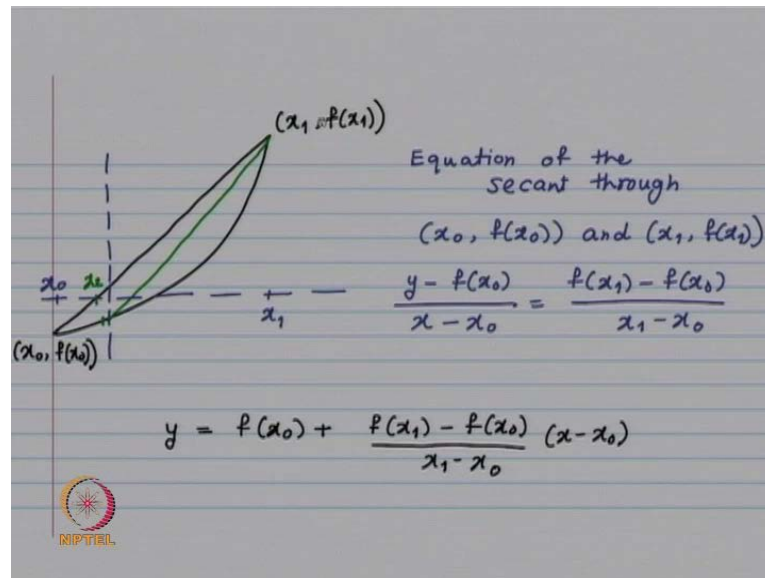 (x₁, f(x₁))
Equation of the
secant through
(x₀, f(x₀)) and (x₁, f(x₁))
x₀ x₂ x₁
(y - f(x₀))/(x - x₀) = (f(x₁) - f(x₀))/(x₁ - x₀)
(x₀, f(x₀))
y = f(x₀) + (f(x₁) - f(x₀))/(x₁ - x₀) (x - x₀)
NPTEL